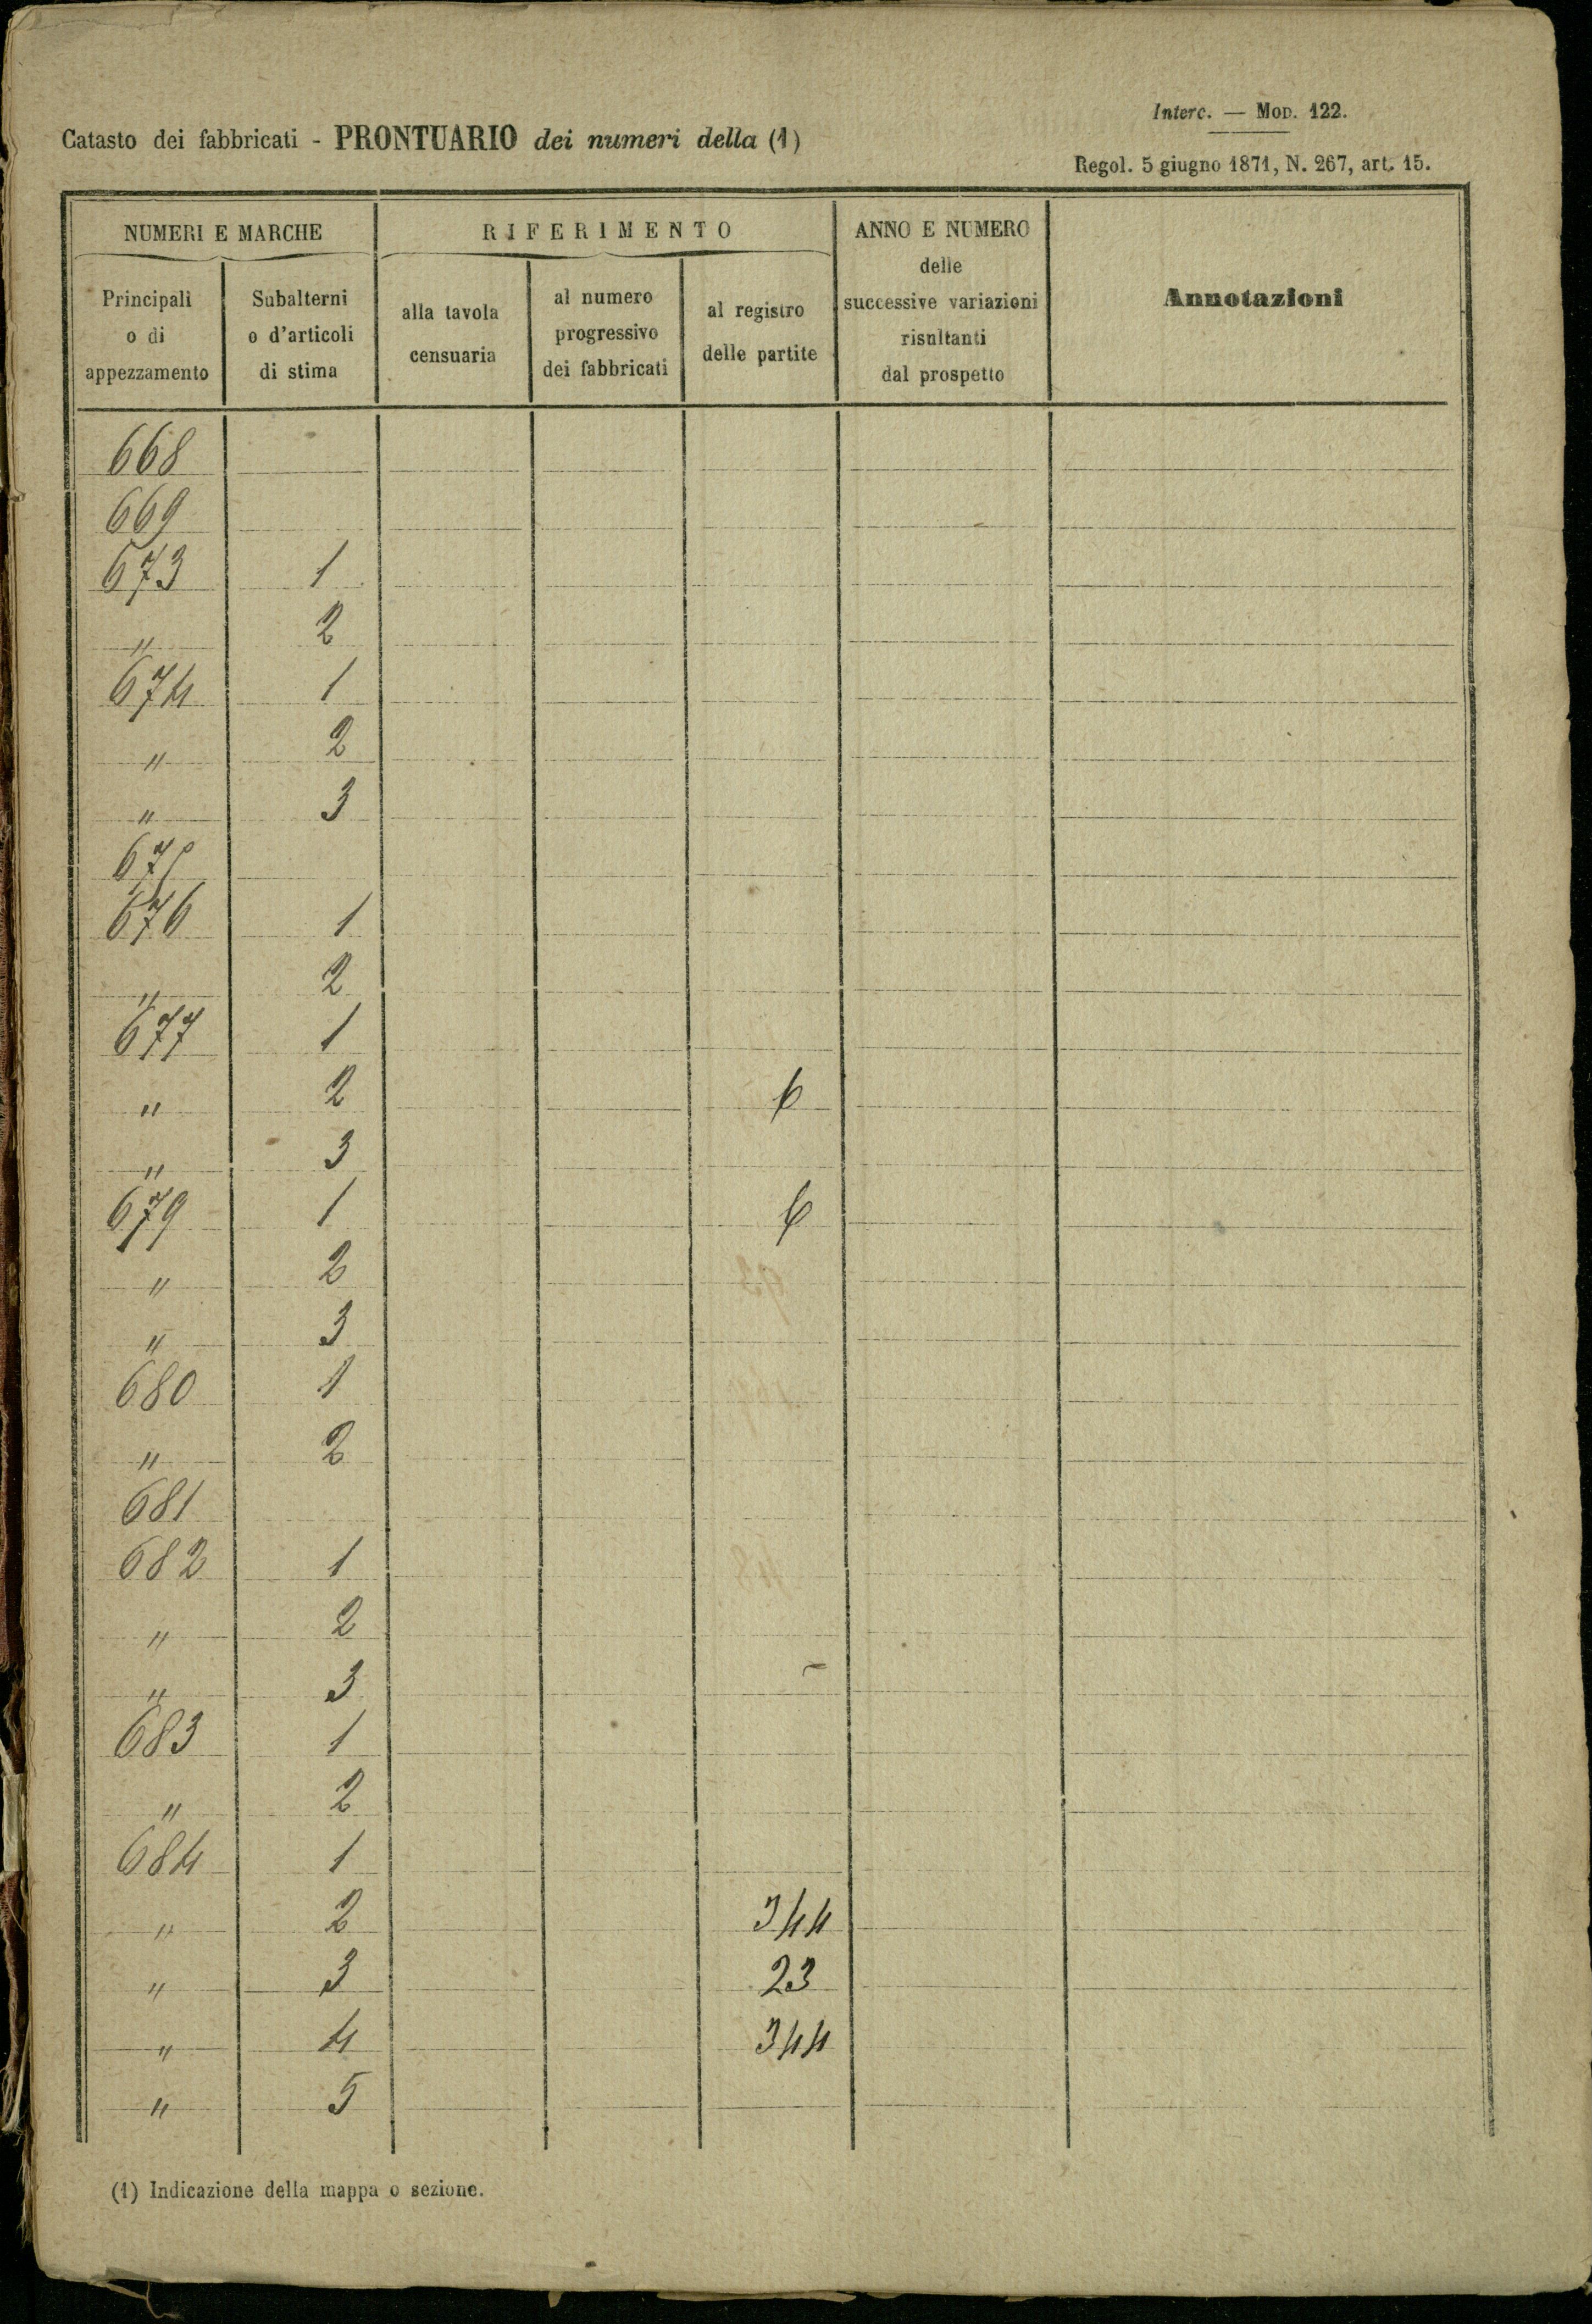 Interc. — Mod. 122.
Catasto dei fabbricati - PRONTUARIO dei numeri della (1)
Regol. 5 giugno 1871, N. 267, art. 15.
NUMERI E MARCHE
RIFERIMENTO
ANNO E NUMERO
delle
successive variazioni
risultanti
dal prospetto
Annotazioni
Principali
o di
appezzamento
Subalterni
o d'articoli
di stima
alla tavola
censuaria
al numero
progressivo
dei fabbricati
al registro
delle partite
668
669
673 1
" 2
674 1
" 2
" 3
675
676 1
" 2
677 1
" 2 6
" 3
679 1 6
" 2
" 3
680 1
" 2
681
682 1
" 2
" 3
683 1
" 2
684 1
" 2 344
" 3 23
" 4 344
" 5
(1) Indicazione della mappa o sezione.